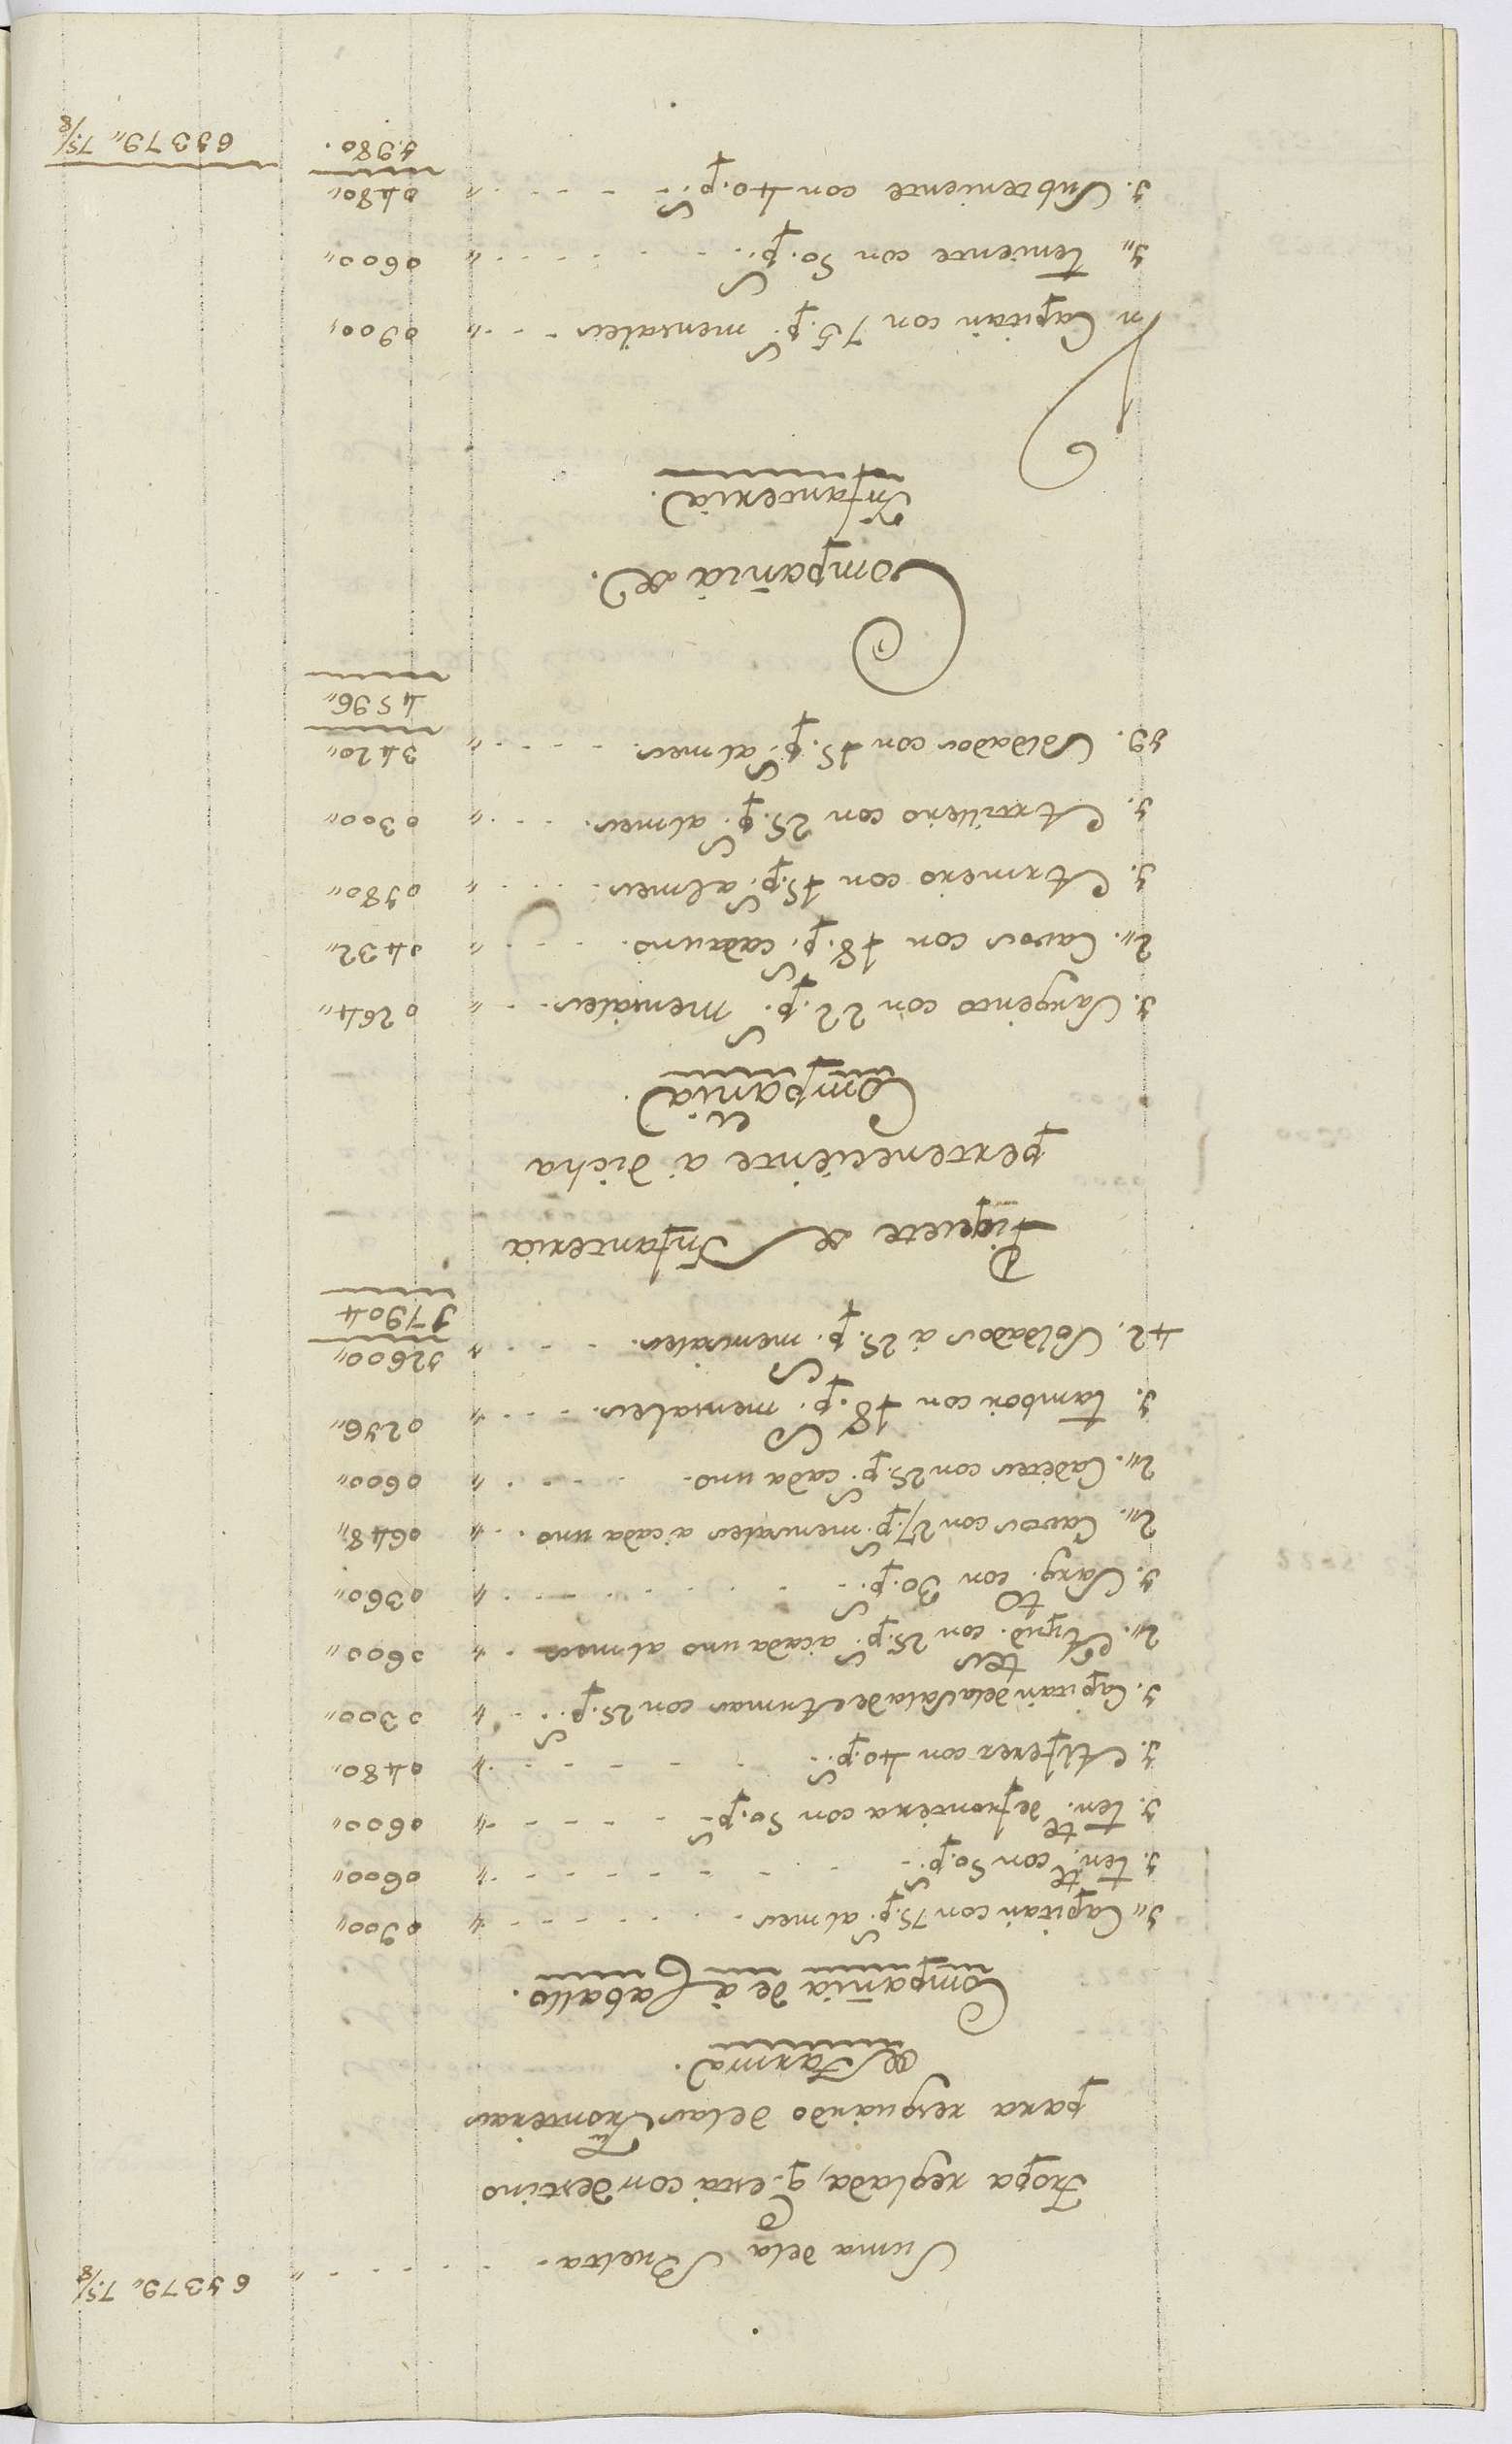 Suma dela Buelta . . . . . " 61379,, 7 5/8
Tropa reglada, q.e está con destino
para resguardo delas Fronteras
de Tarma.
Compañia de à Caballo.
1,, Capitan con 75. p.s al mes . . . . . . " 0900,,
1. Ten.te con 50. p.s . . . . . . " 0600,,
1. Ten.te de frontera con 50. p.s . . . . . " 0600,,
1. Alferez con 40. p.s . . . . . " 0480,,
1. Capitan dela Sala de Armas con 25. p.s . . " 0300,,
2,, Ayud.tes con 25. p.s a cada uno al mes . " 0600,,
1. Sarg.to con 30. p.s . . . . . . " 0360,,
2,, Cavos con 27. p.s mensales a cada uno . . " 0648,,
2,, Cadetes con 25. p.s cada uno . . . . " 0600,,
1. Tambor con 18. p.s mensales . . . . " 0216,,
42. Soldados à 25. p.s mensales . . . . " 12600,,
17904
Piquete de Infanteria
perteneciente a dicha
Compania.
1. Sargento con 22. p.s mensales . . " 0264,,
2,, Cavos con 18. p.s cada uno . . . " 0432,,
1. Armero con 15. p.s al mes . . . . " 0180,,
1. Artillero con 25. p.s al mes . . . . " 0300,,
19. Soldados con 15. p.s al mes . . . . " 3420,,
4596,,
Compañia de
Infanteria.
Un Capitan con 75. p.s mensales . . . " 0900,,
1,, Teniente con 50. p.s . . . . . . " 0600,,
1. Subteniente con 40. p.s . . . . . " 0480,,
1980. 61379,, 7 5/8